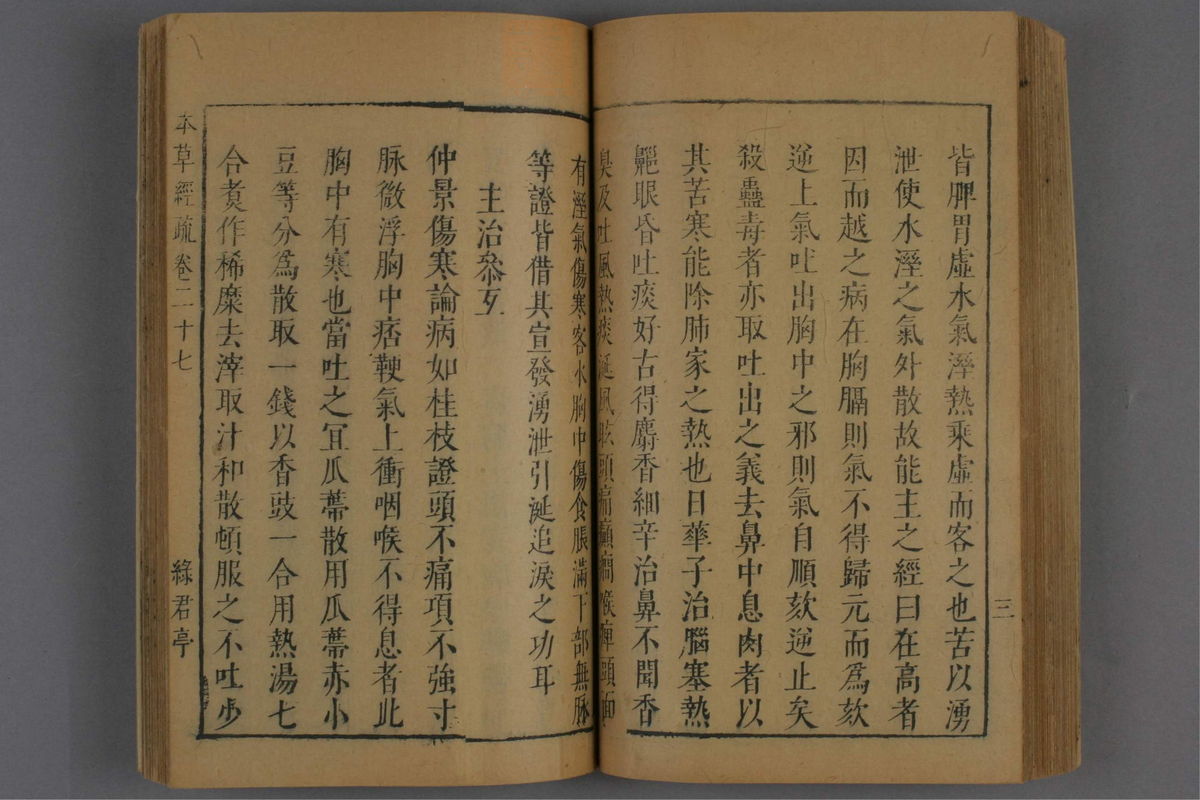 皆脾胃虛水氣溼熱乘虛而客之也苦以湧
泄使水溼之氣外散故能主之經曰在高者
因而越之病在胸膈則氣不得歸元而爲欬
逆上氣吐出胸中之邪則氣自順欬逆止矣
殺蠱毒者亦取吐出之義去鼻中息肉者以
其苦寒能除肺家之熱也日華子治腦塞熱
齆眼昏吐痰好古得麝香細辛治鼻不聞香
臭及吐風熱痰涎風眩頭痛癲癇喉痺頭面
有溼氣傷寒客水胸中傷食脹滿下部無脉
等證皆借其宣發湧泄引涎追淚之功耳
主治叅互
仲景傷寒論病如桂枝證頭不痛項不強寸
脉微浮胸中痞鞕氣上衝咽喉不得息者此
胸中有寒也當吐之宜瓜蔕散用瓜蔕赤小
豆等分爲散取一錢以香豉一合用熱湯七
合煑作稀糜去滓取汁和散頓服之不吐步
三
本草經疏卷二十七
綠君亭